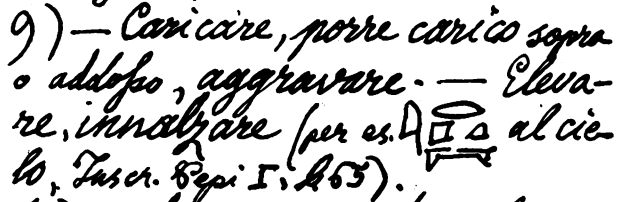 9) — Caricare, porre carico sopra
o addosso, aggravare. — Eleva-
re, innalzare (per es. al cie-
lo, Inscr. Pepi I, 65).